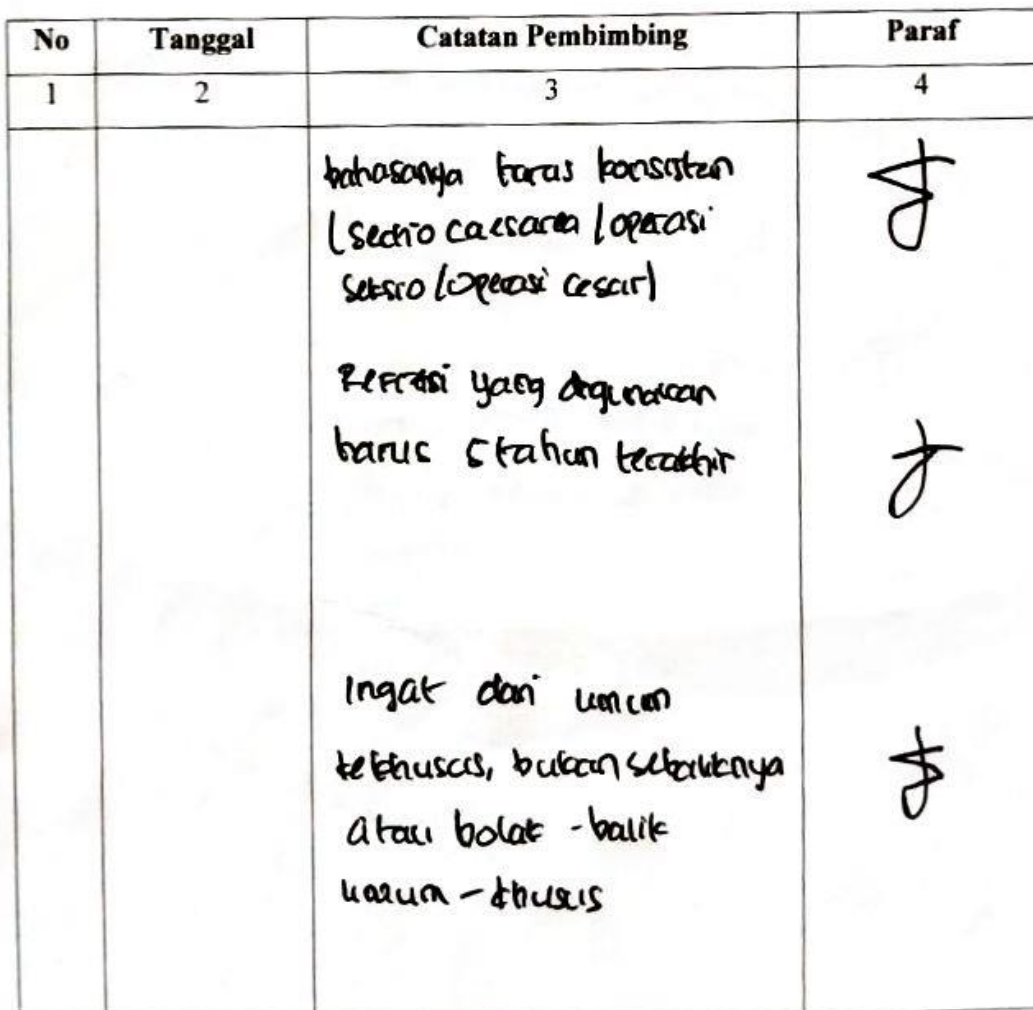 No Tanggal Catatan Pembimbing Paraf
1 2 3 4
bahasanya harus konsisten
(sectio caesarea / operasi
seksio / operasi cesar)
Refrensi yang digunakan
harus 5 tahun terakhir
Ingat dari umum
ke khusus, bukan sebaliknya
atau bolak - balik
umum - khusus